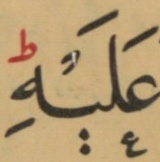 عَلَيْهِ ط ع